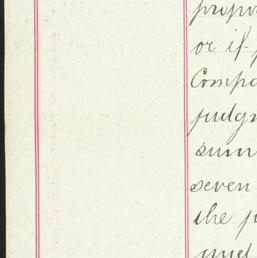 propo
or if
Compa
judgm
sum
seven
the p
and